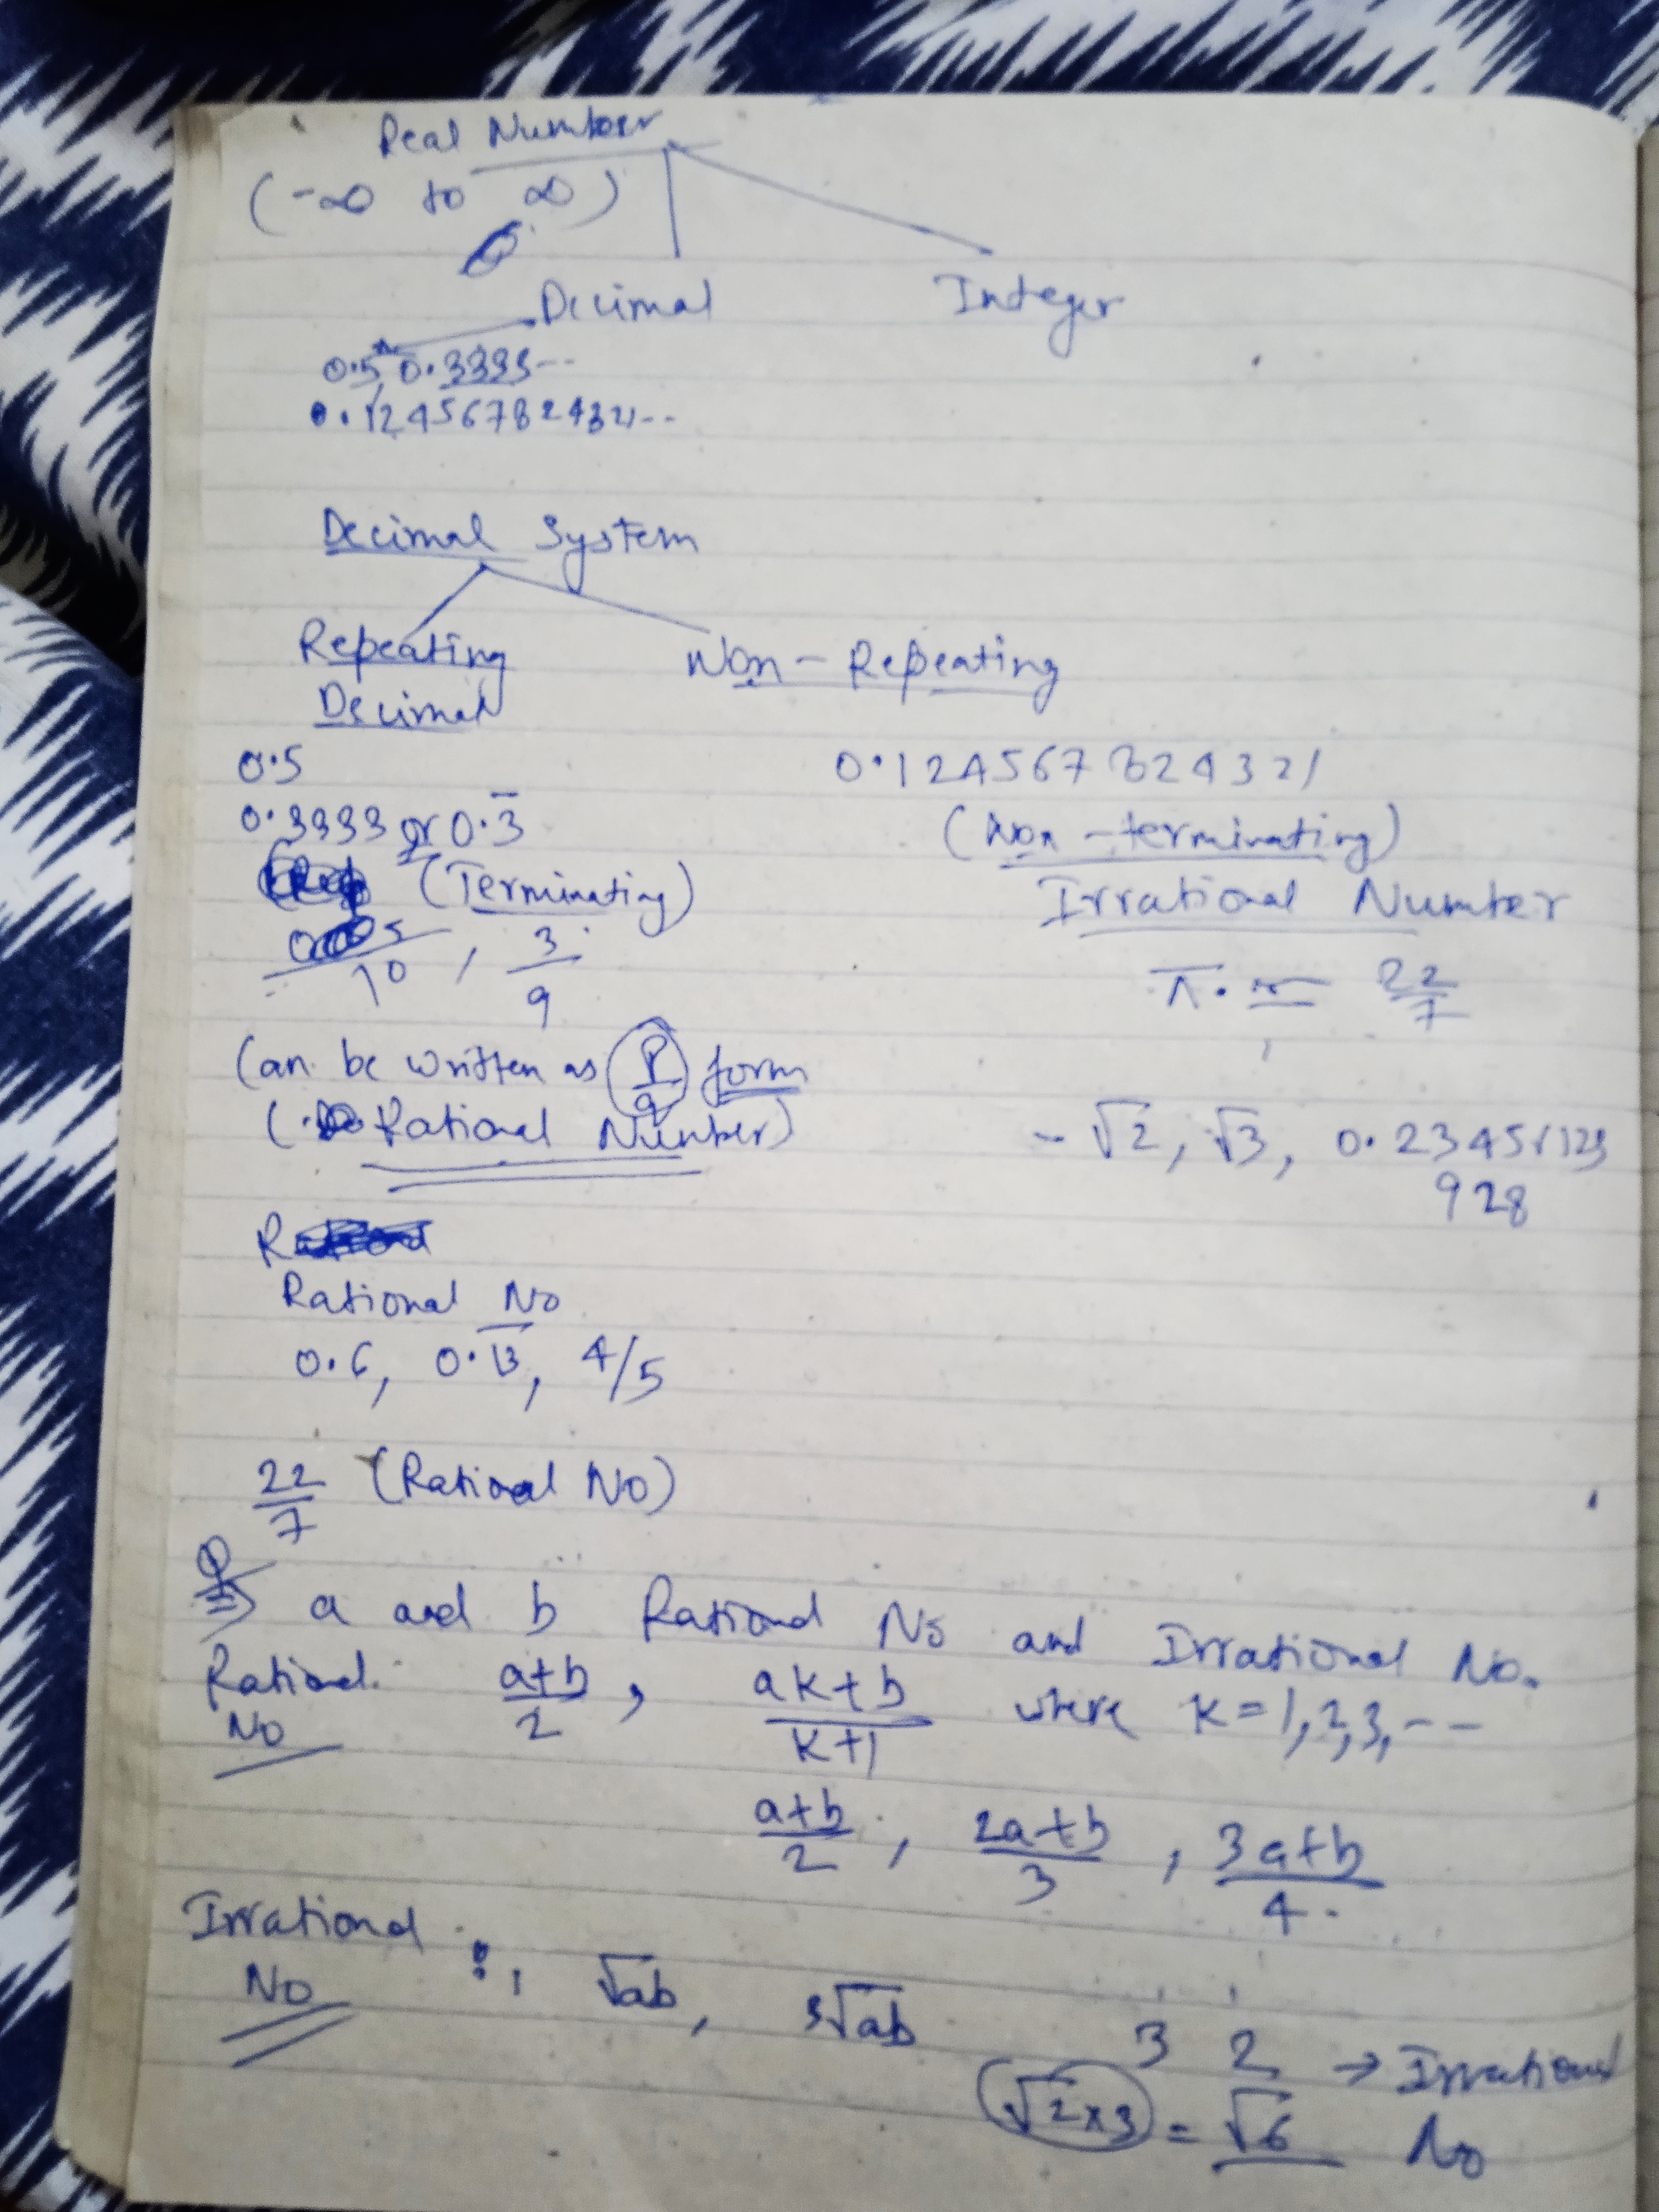 Real Number
(-∞ to ∞)
Decimal Integer
0.5, 0.3333--
0.124567824321--
Decimal System
Repeating Non-Repeating
Decimal
0.5 0.124567824321
0.3333 or 0.3̅ (Non-terminating)
(Terminating) Irrational Number
/10, 3/9 π ≈ 22/7
Can be written as p/q form
(Rational Number) - √2, √3, 0.23451123
928
Rational No
0.6, 0.1̅3̅, 4/5
22/7 (Rational No)
Q⇒ a and b Rational No and Irrational No.
Rational: a+b/2, ak+b/k+1 where k=1,2,3,--
No
a+b/2, 2a+b/3, 3a+b/4.
Irrational : √ab, ³√ab
No
3 2
√2×3 = √6 → Irrational
No